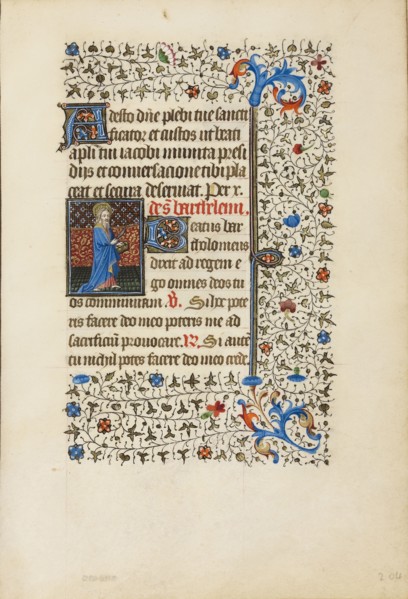 Adesto dñe plebi tue sancti
ficator et custos ut beati
apli tui iacobi munita presi
dijs et conversacione tibi pla
ceat et secura deserviat. Per x.
de s. bartelemi,
Beatus bar
tholomeus
dixit ad regem e
go omnes deos tu
os comminuam. V. Si ipe pote
ris facere deo meo poteris me ad
sacrificiũ provocare. R. Si autẽ
tu michil potes facere deo meo crede.